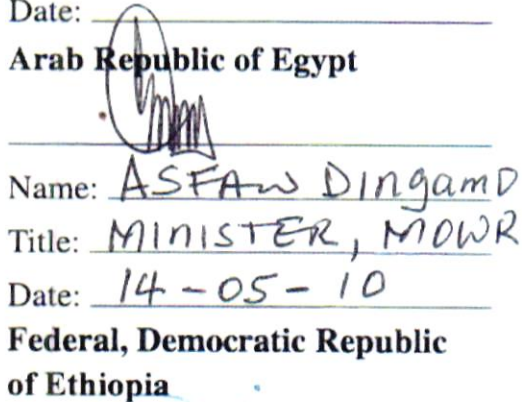 Date:
Arab Republic of Egypt
Name: ASFAW DIngamO
Title: MINISTER, MOWR
Date: 14-05-10
Federal, Democratic Republic
of Ethiopia